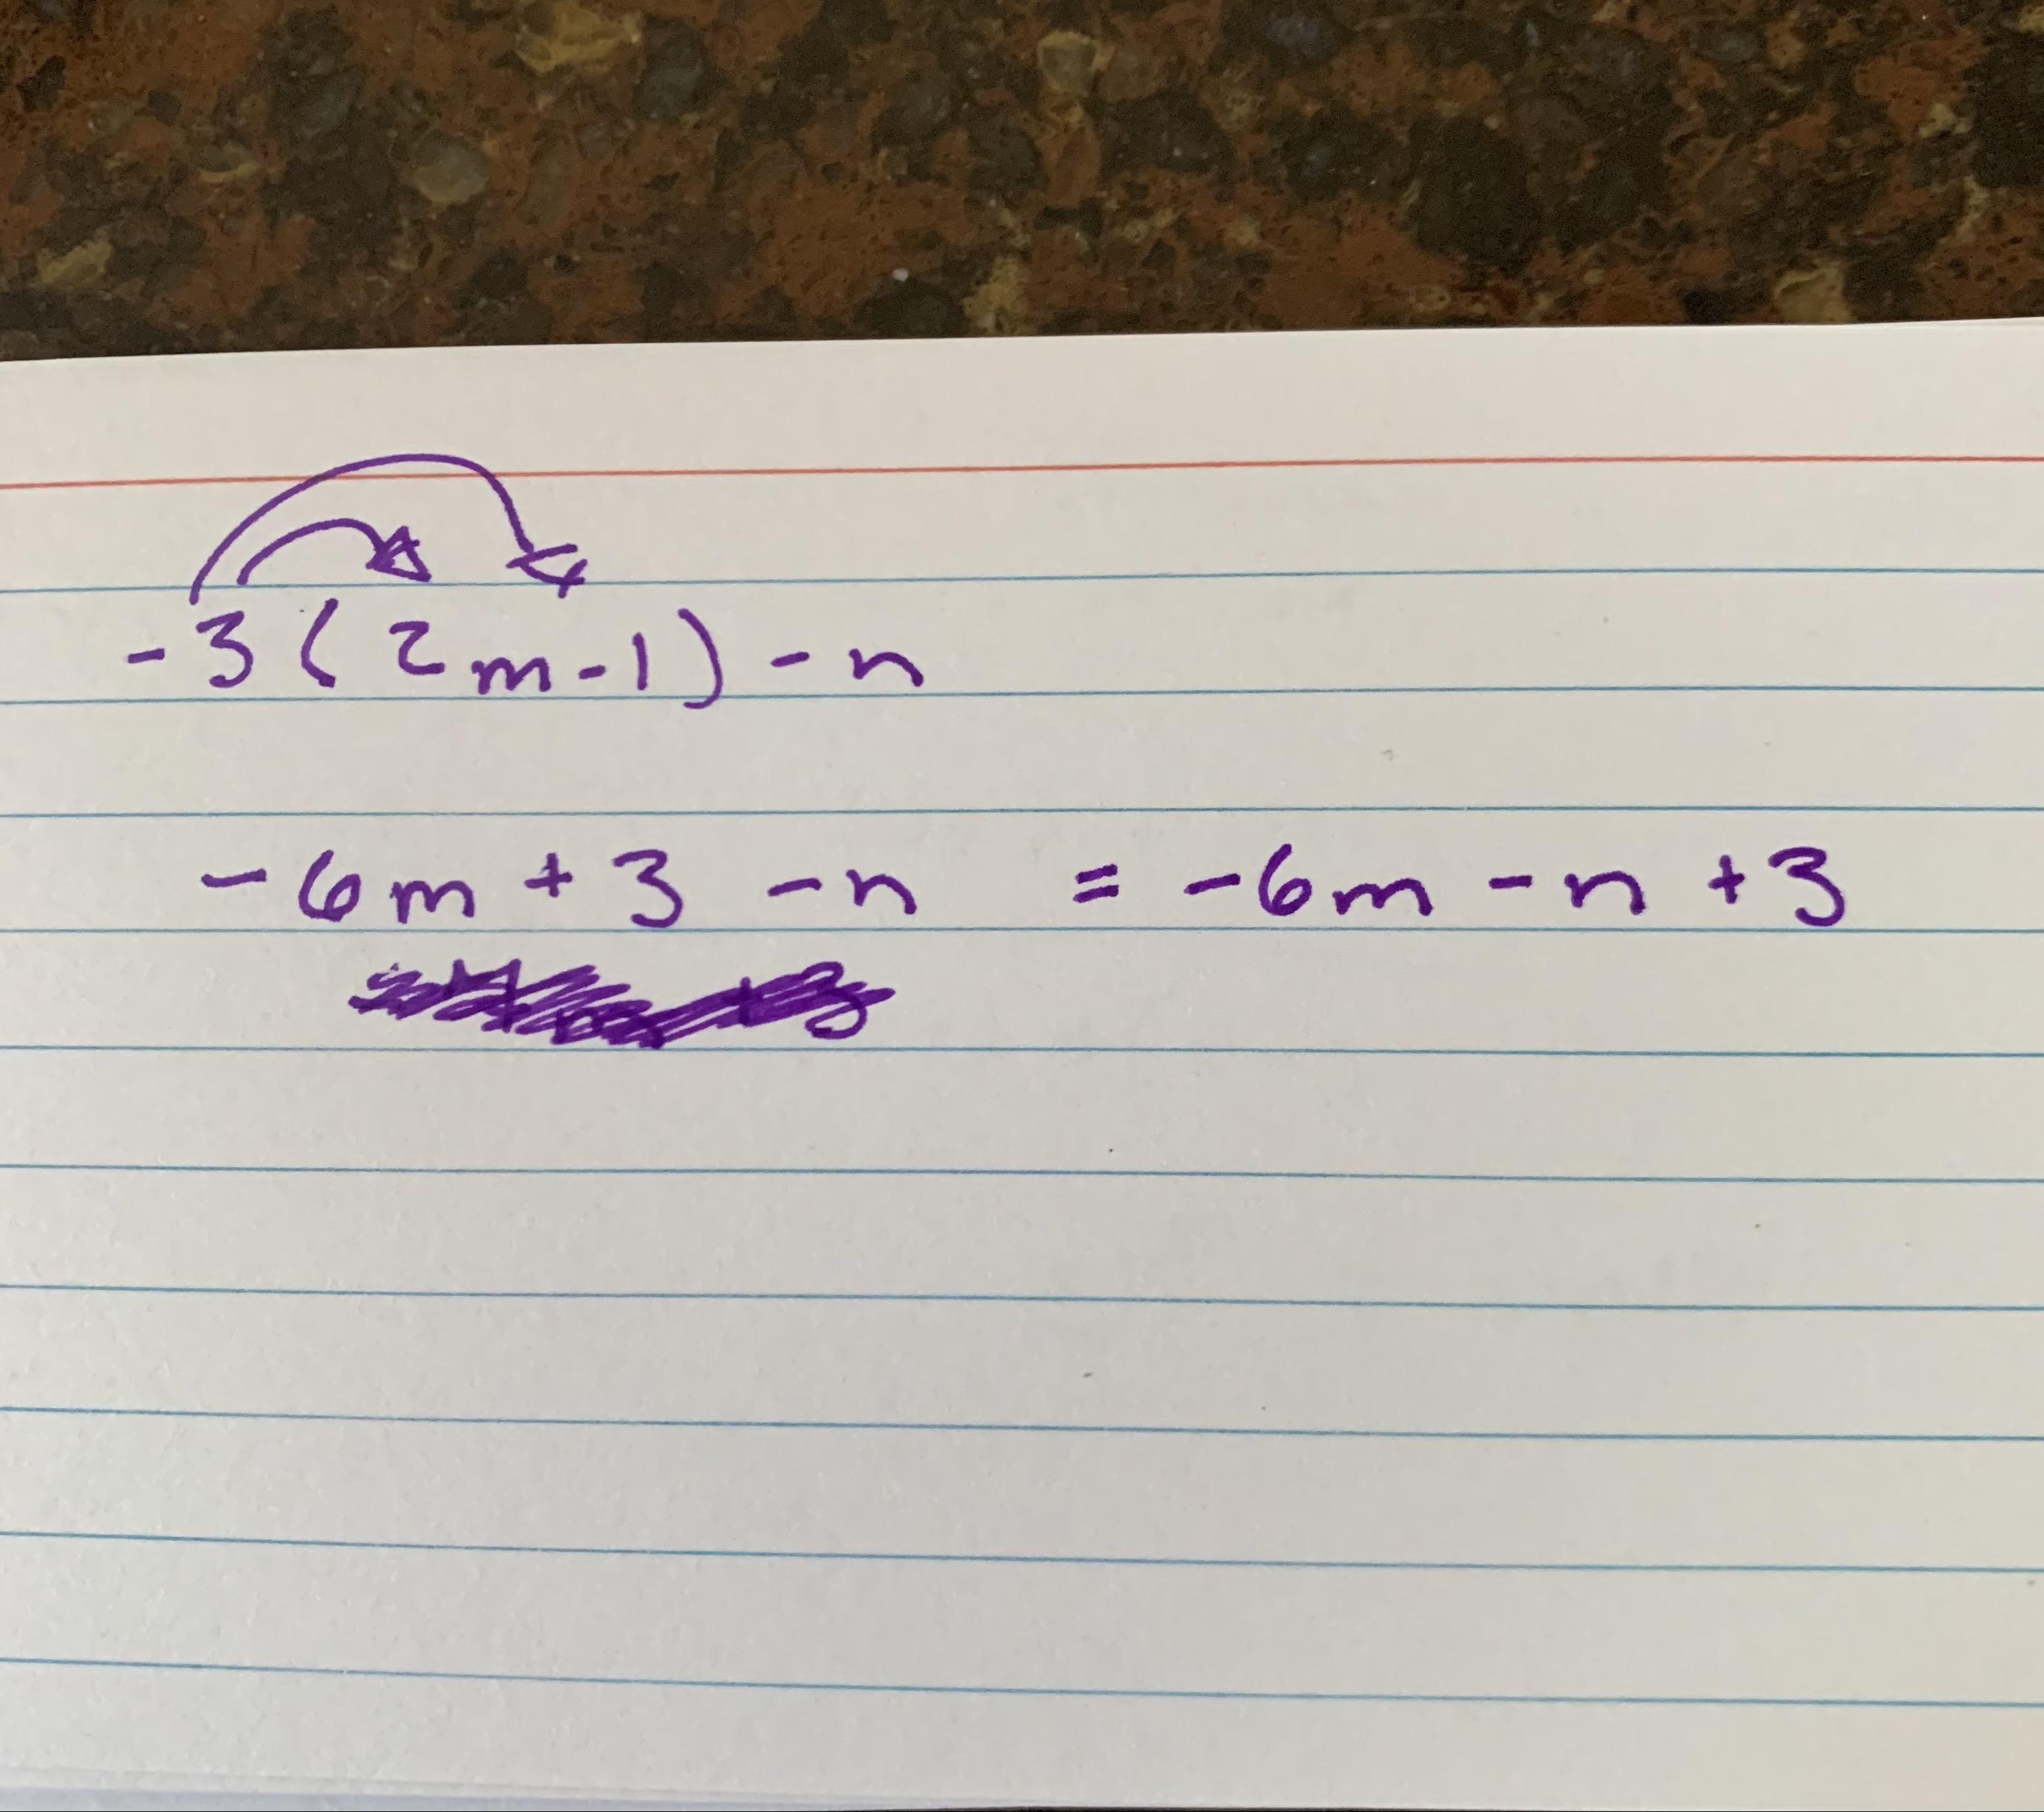 -3(2m-1)-n
-6m+3-n = -6m-n+3